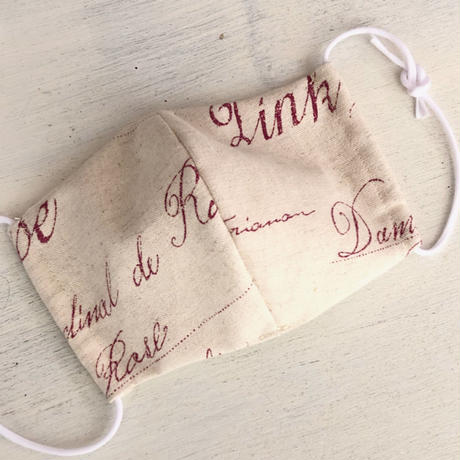 Link
oe
dinal de Ro
rianan
Dam
Rose